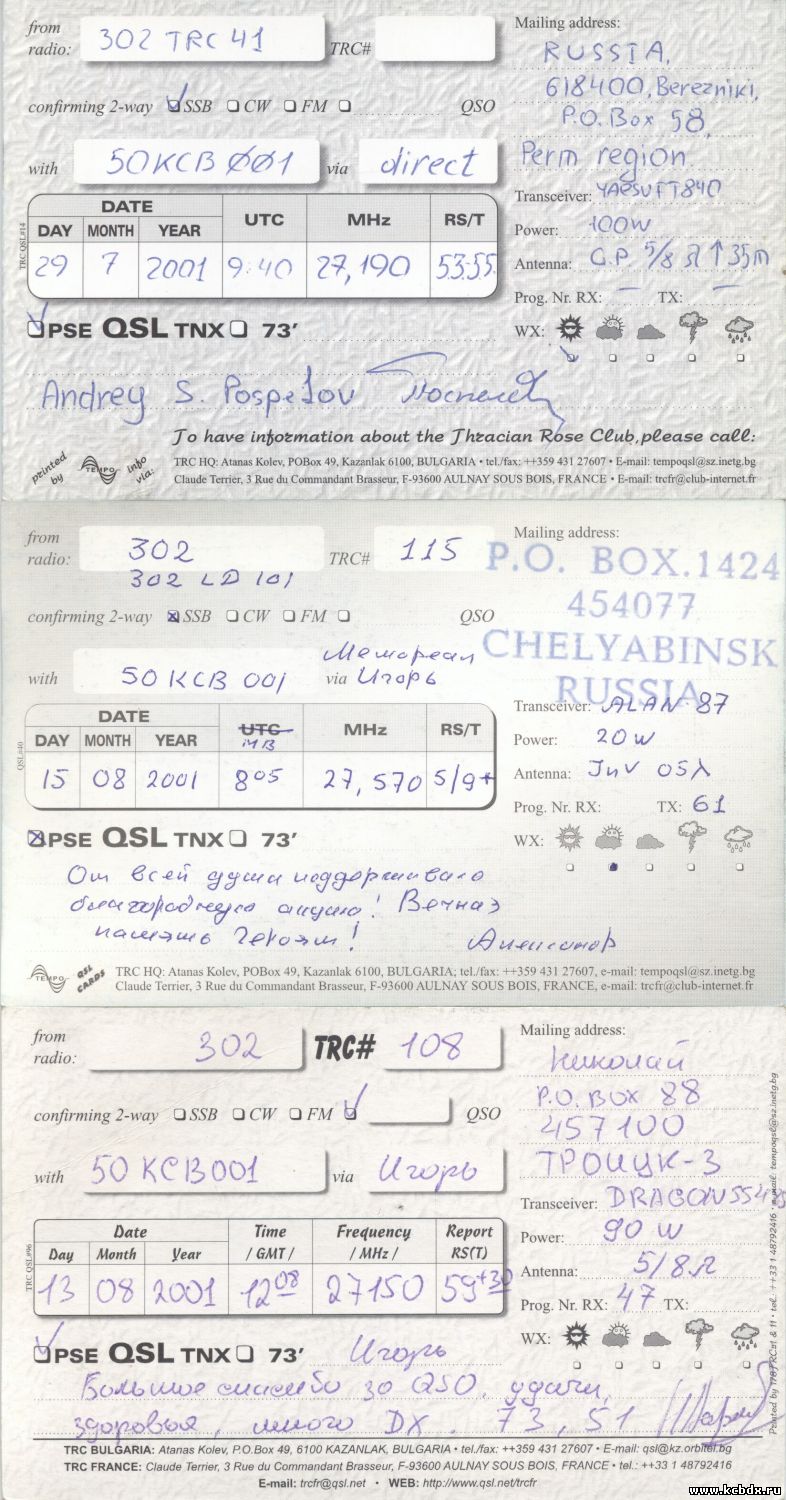 from radio: 302 TRC 41 TRC#
confirming 2-way SSB CW FM QSO
with 50KCB ØØ1 via direct
Mailing address:
RUSSIA,
618400, Berezniki,
P.O. Box 58,
Perm region
Transceiver: YAESU FT 840
Power: 100W
Antenna: G.P. 5/8 λ ↑ 35m
Prog. Nr. RX: — TX: —
WX:
DATE UTC MHz RS/T
DAY MONTH YEAR
29 7 2001 9:40 27,190 53:55
TRC QSL#14
PSE QSL TNX 73'
Andrey S. Pospelov
To have information about the Thracian Rose Club, please call:
printed by TEMPO info via:
TRC HQ: Atanas Kolev, POBox 49, Kazanlak 6100, BULGARIA • tel./fax: ++359 431 27607 • E-mail: tempoqsl@sz.inetg.bg
Claude Terrier, 3 Rue du Commandant Brasseur, F-93600 AULNAY SOUS BOIS, FRANCE • E-mail: trcfr@club-internet.fr
from radio: 302 TRC# 115
302 LD 101
confirming 2-way SSB CW FM QSO
Мемореал
with 50 KCB 001 via Игорь
Mailing address:
P.O. BOX.1424
454077
CHELYABINSK
RUSSIA
Transceiver: ALAN 87
Power: 20 W
Antenna: InV 05λ
Prog. Nr. RX: TX: 61
WX:
DATE UTC MHz RS/T
DAY MONTH YEAR
15 08 2001 8 05 27,570 5/9+
QSL#40
PSE QSL TNX 73'
От всей души поддерживаю
благородную акцию! Вечная
память Героям!
Александр
TEMPO QSL CARDS
TRC HQ: Atanas Kolev, POBox 49, Kazanlak 6100, BULGARIA; tel./fax: ++359 431 27607, e-mail: tempoqsl@sz.inetg.bg
Claude Terrier, 3 Rue du Commandant Brasseur, F-93600 AULNAY SOUS BOIS, FRANCE, e-mail: trcfr@club-internet.fr
from radio: 302 TRC# 108
confirming 2-way SSB CW FM QSO
with 50 KCB001 via Игорь
Mailing address:
Николай
P.O. BOX 88
457100
ТРОИЦК-3
Transceiver: DRAGON SS485
Power: 90 W
Antenna: 5/8 λ
Prog. Nr. RX: 47 TX:
WX:
Date Time Frequency Report
Day Month Year / GMT / / MHz / RS(T)
13 08 2001 12 08 27150 59+30
TRC QSL#96
PSE QSL TNX 73' Игорь
Большое спасибо за QSO, удачи,
здоровья, много DX. 73, 51
TRC BULGARIA: Atanas Kolev, P.O.Box 49, 6100 KAZANLAK, BULGARIA • tel./fax: ++359 431 27607 • E-mail: qsl@kz.orbitel.bg
TRC FRANCE: Claude Terrier, 3 Rue du Commandant Brasseur, F-93600 AULNAY SOUS BOIS, FRANCE • tel.: ++33 1 48792416
E-mail: trcfr@qsl.net • WEB: http://www.qsl.net/trcfr
Printed by 178TRC#1 & 11 • tel.: ++33 1 48792416 • e-mail: tempoqsl@sz.inetg.bg
www.kcbdx.ru